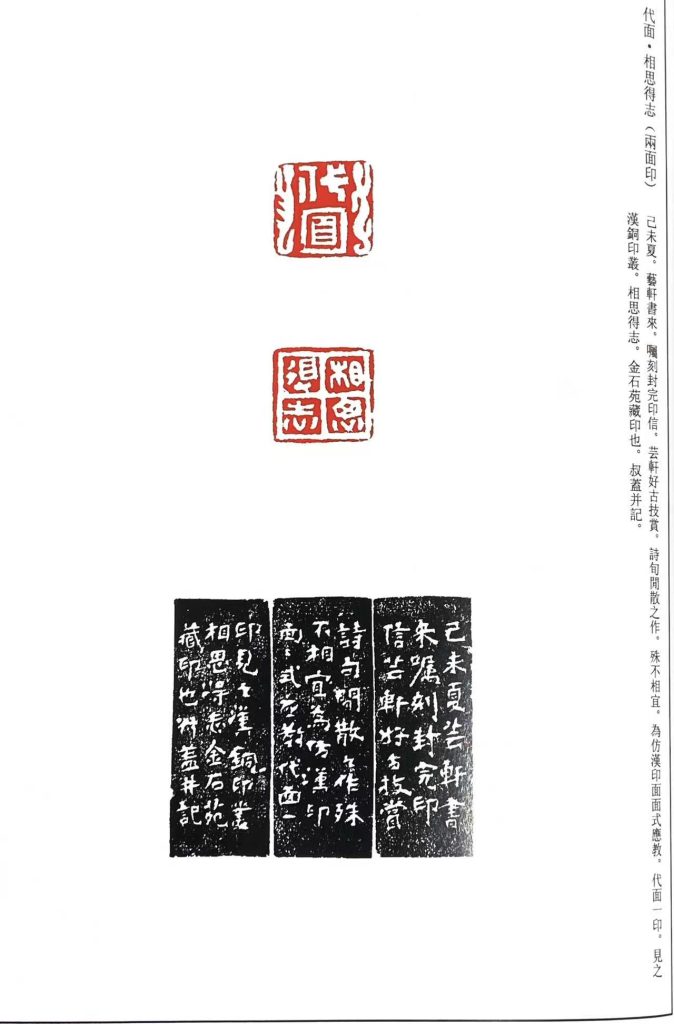 代面•相思得志（兩面印）
己未夏。藝軒書來。囑刻封完印信。芸軒好古技賞。詩旬閒散之作。殊不相宜。為仿漢印面面式應教。代面一印。見之
漢銅印叢。相思得志。金石苑藏印也。叔蓋并記。
代面
相思
得志
己未夏芸軒書
来囑刻封完印
信芸軒好古技賞
詩句閒散之作殊
不相宜為仿漢印
面〻式应教代面一
印見之漢銅印叢
相思得志金石苑
藏印也叔蓋井記